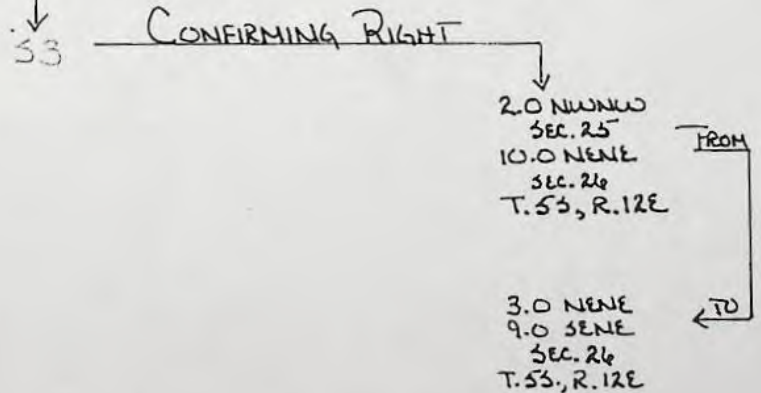 33
CONFIRMING RIGHT
2.0 NWNW
SEC. 25
FROM
10.0 NENE
SEC. 26
T.5S, R.12E
3.0 NENE
TO
9.0 SENE
SEC. 26
T.5S., R.12E